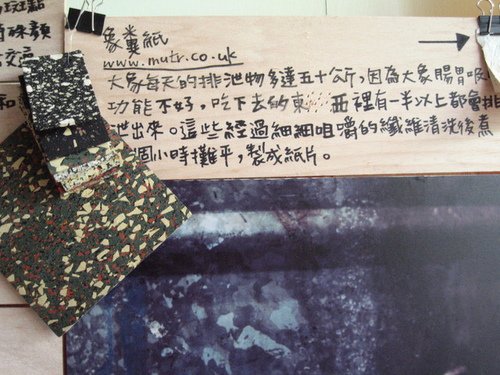 象糞紙
www.mutr.co.uk
大象每天的排泄物多達五十公斤,因為大象腸胃吸
功能不好,吃下去的東西裡有一半以上都會排
泄出來。這些經過細細咀嚼的纖維清洗後煮
個小時攤平,製成紙片。
斑點
交流
和